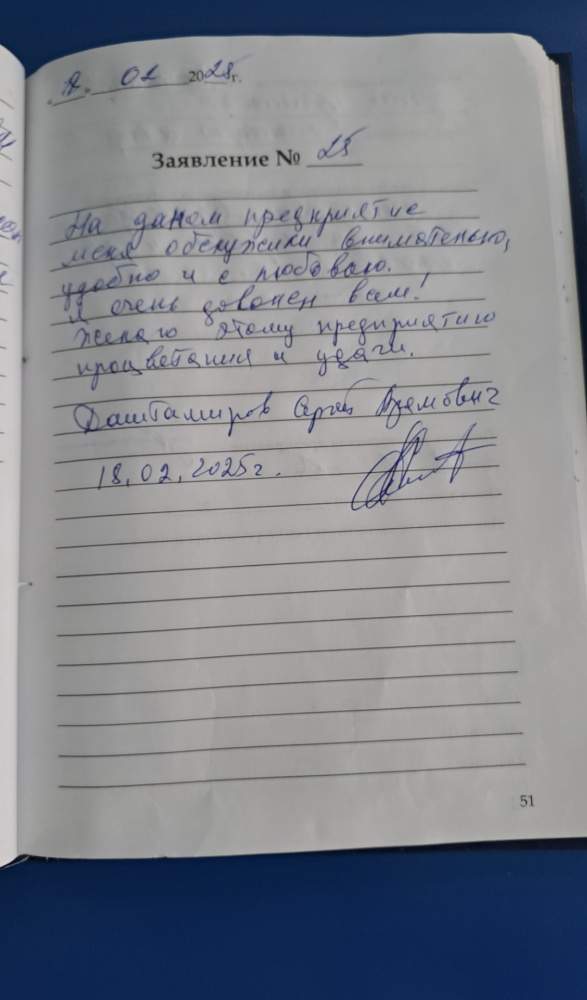 02 2025г.
Заявление № 25
На даном предприятие
меня обслужили внимательно,
удобно и с любоваю.
Я очень доволен вам!
Желаю этому предприятию
процветания и удачи.
Даштамиров
18.02.2025г.
51